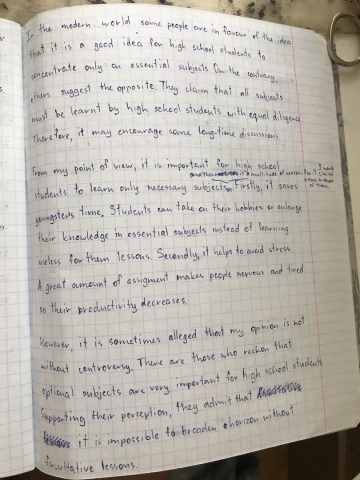 In the modern world some people are in favour of the idea
that it is a good idea for high school students to
concentrate only on essential subjects. On the contrary,
others suggest the opposite. They claim that all subjects
must be learnt by high school students with equal diligence.
Therefore, it may encourage some long-time discussions.
From my point of view, it is important for high school
and there is a multitude of reasons
students to learn only necessary subjects. Firstly, it saves
youngsters time. Students can take on their hobbies or enlarge
their knowledge in essential subjects instead of learning
useless for them lessons. Secondly, it helps to avoid stress
A great amount of assigment makes people nervous and tired
so their productivity decreases.
However, it is sometimes alleged that my opinion is not
without controversy. There are those who reckon that
optional subjects are very important for high school students.
Supporting their perception, they admit that
it is impossible to broaden a horizon without
facultative lessons.